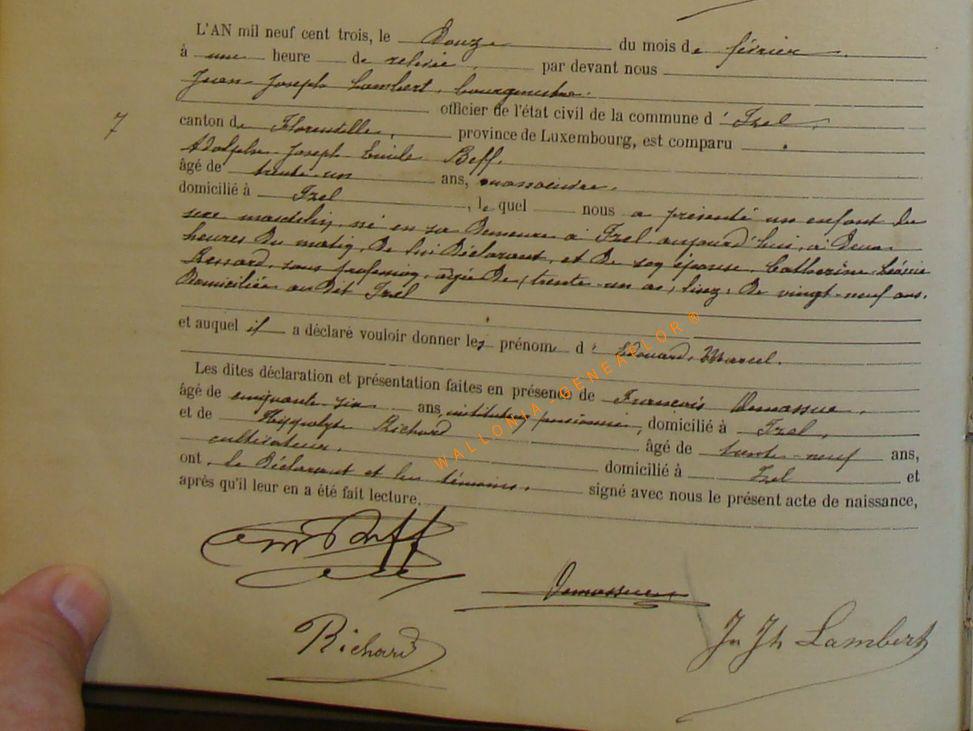 L'AN mil neuf cent trois, le douze du mois de février
à une heure de relevée, par devant nous
Jean Joseph Lambert, bourgmestre,
officier de l'état civil de la commune d' Izel,
7
canton de Florenville, province de Luxembourg, est comparu
Adolphe Joseph Emile Beff,
âgé de trente-un ans, menuisier,
domicilié à Izel, lequel nous a présenté un enfant du
sexe masculin, né en sa demeure à Izel, aujourd'hui, à deux
heures du matin, de lui déclarant, et de son épouse, Catherine Léonie
sans profession, âgée de (trente-un as, lisez: de vingt-neuf ans,
domiciliée au dit Izel
et auquel il a déclaré vouloir donner les prénoms d' Edouard, Marcel.
Les dites déclaration et présentation faites en présence de François Demassue,
âgé de cinquante-six ans, instituteur pensionné, domicilié à Izel,
et de Hippolyte Richard âgé de trente-neuf ans,
cultivateur, domicilié à Izel et
ont, le déclarant et les témoins, signé avec nous le présent acte de naissance,
après qu'il leur en a été fait lecture.
Beff
Demassue
Richard
Jn Jh Lambert
WALLONIA-GENEAFLOR®